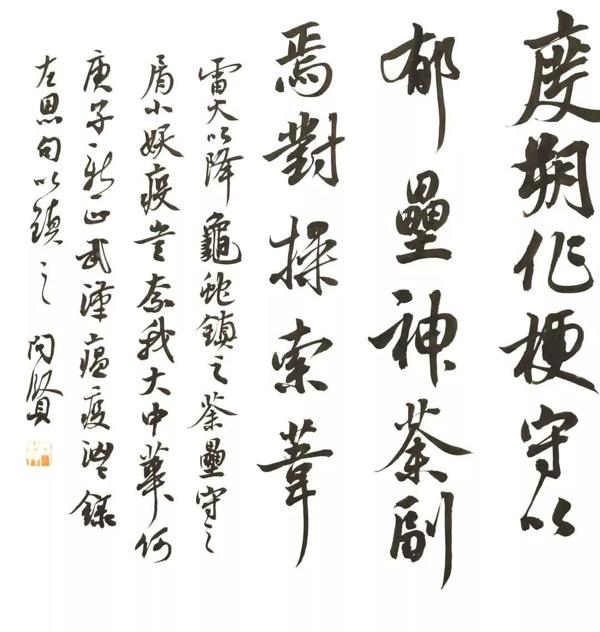 度朔作梗守以
郁壘神荼副
焉對操索葦
雷火以降龜蛇鎮之荼壘守之
屑小妖疫豈奈我大中華何
庚子新正武漢瘟疫澀錄
左思句以鎮之 問賢